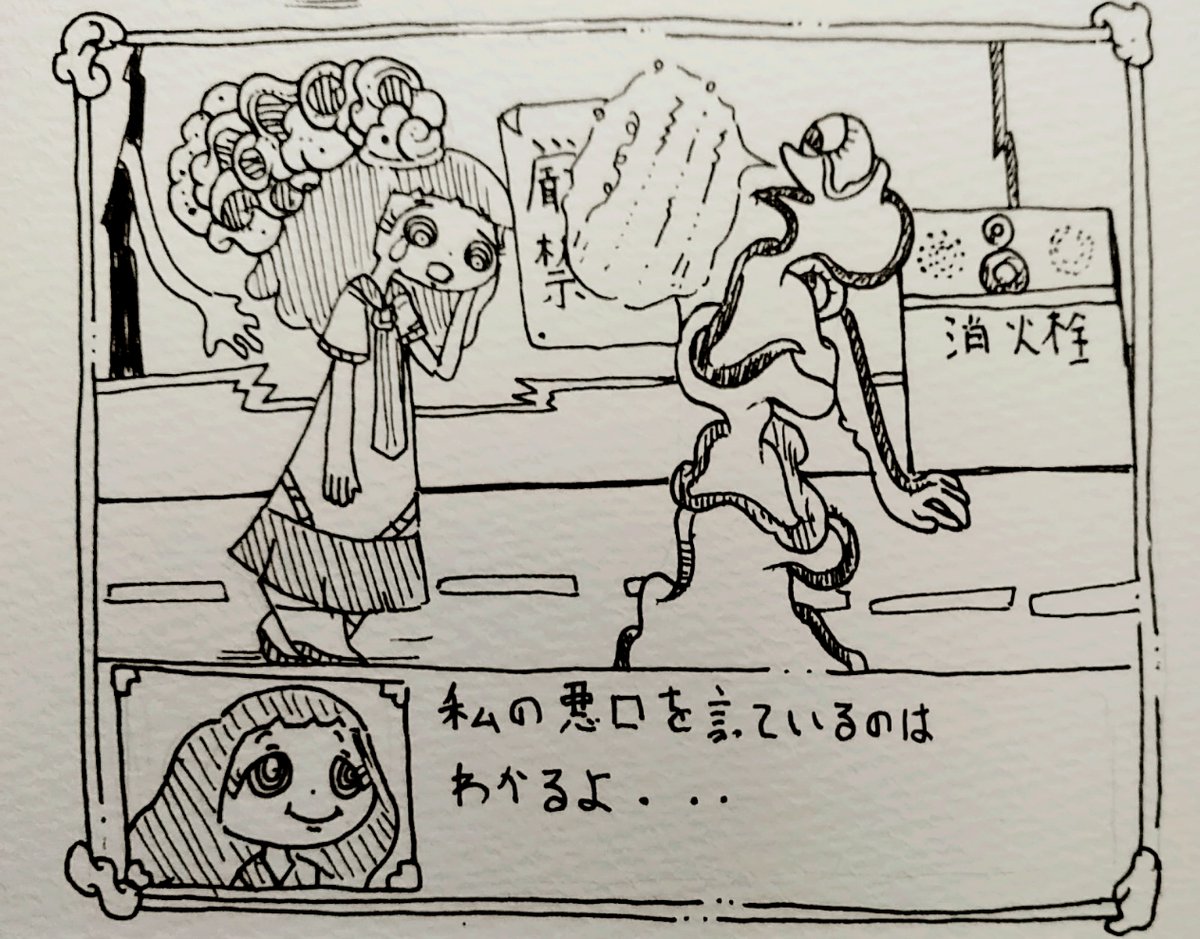 消火栓
私の悪口を言ているのは
わかるよ...